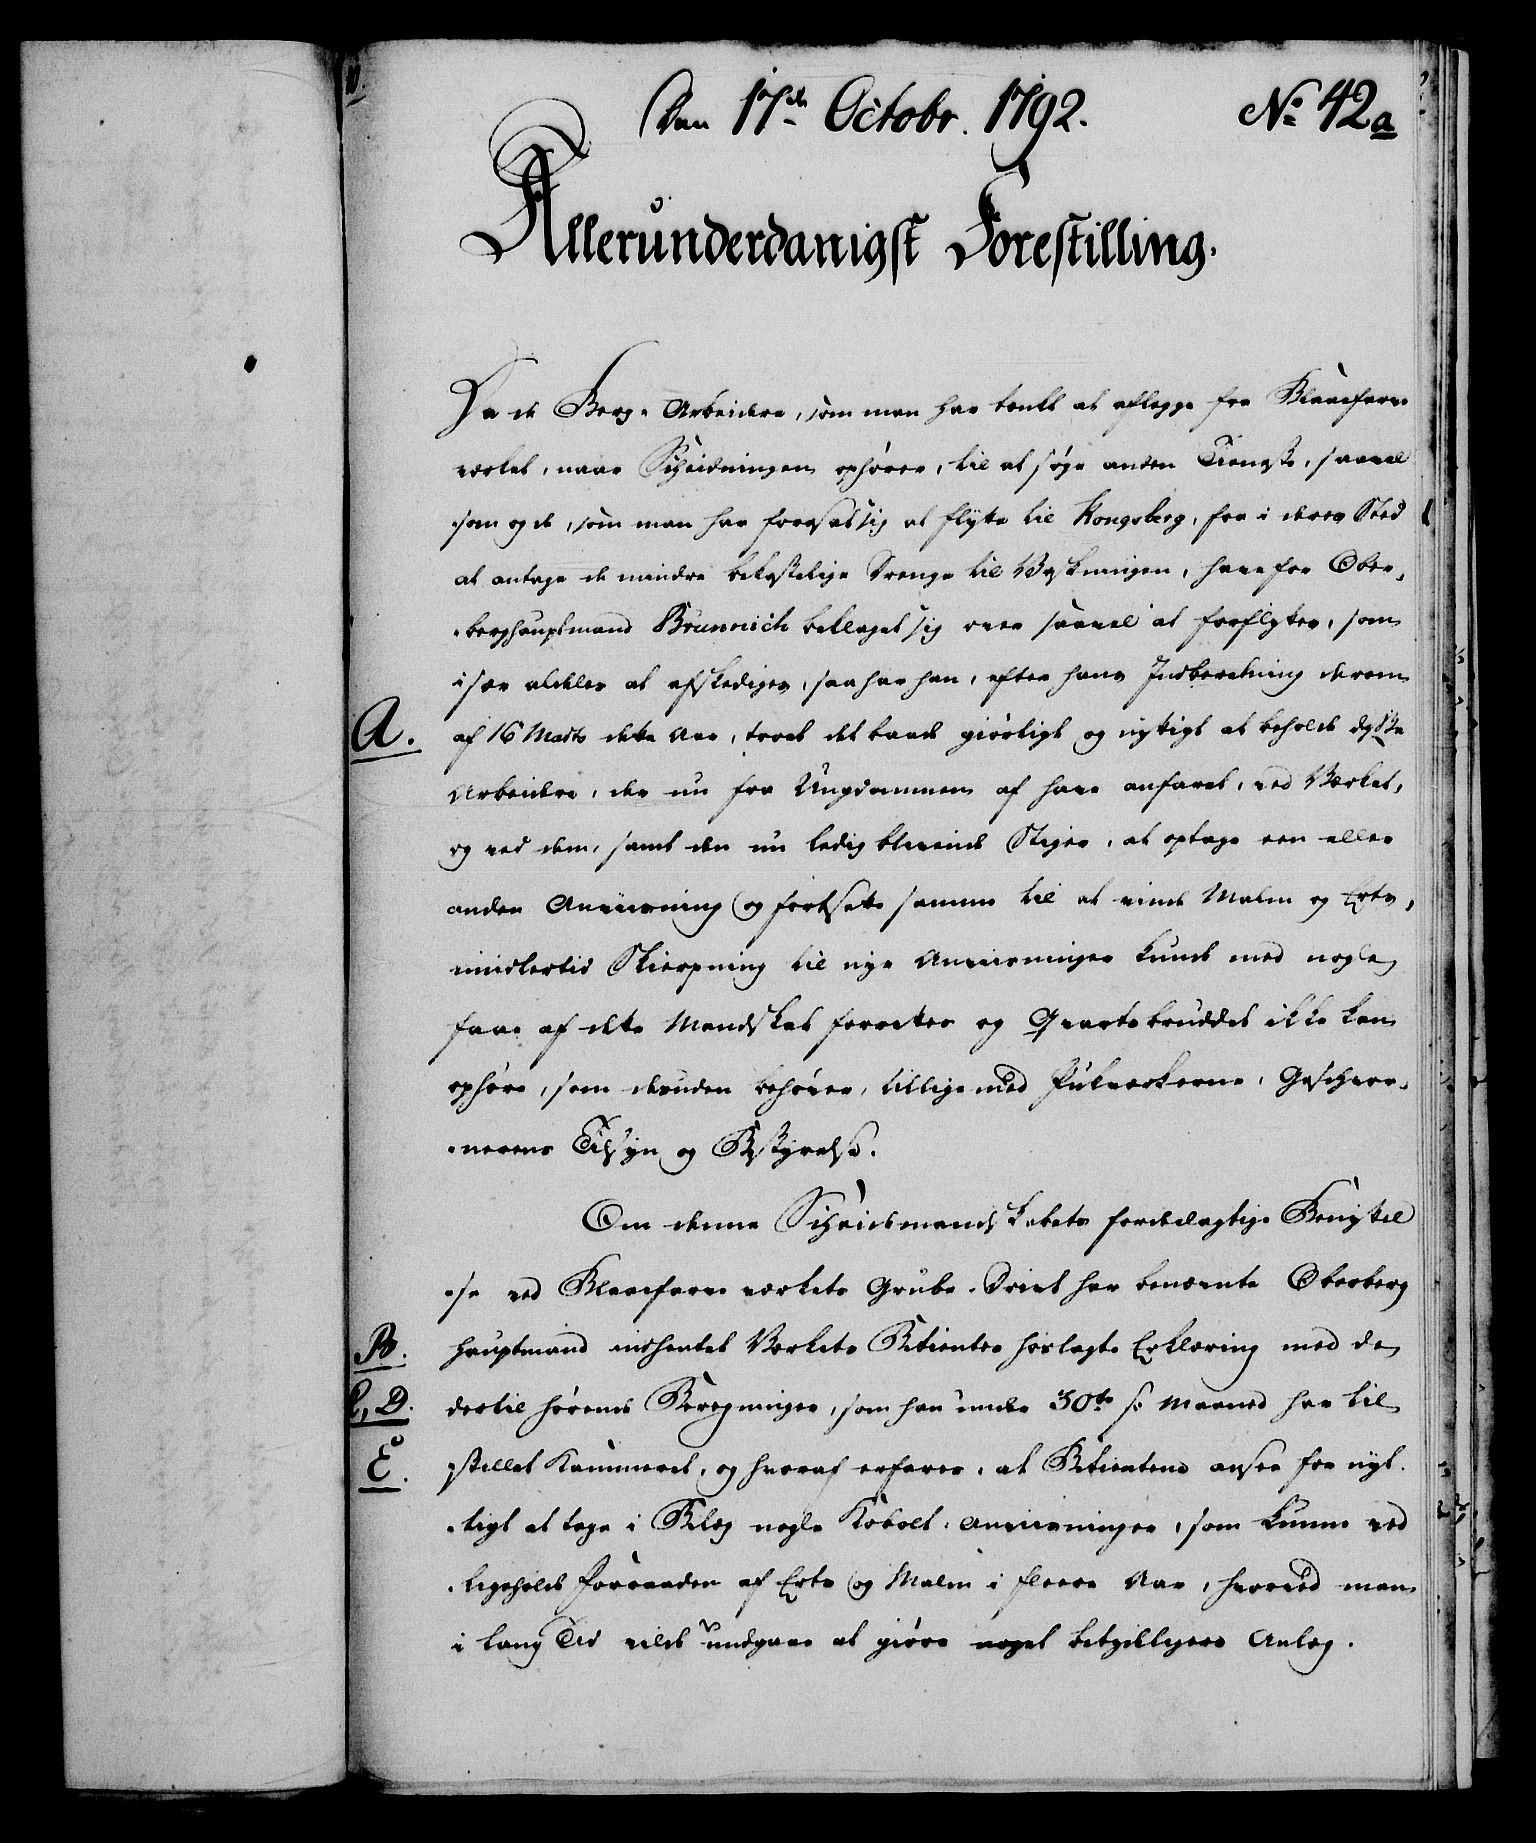 Den 17de Octobr. 1792. No 42a
Allerunderdanigst Forestilling.
Da de Berg-Arbeidere, som man har tænkt at aflegge fra Blaaefarve
værket, naar Scheidningen ophører, til at søge anden Tieneste, saavel
som og de, som man har foresat sig at flytte til Kongsberg, for i deres Sted
at antage de mindre bekostelige Drenge til Vaskningen, have for Ober-
-berghauptmand Brunnich beklaget sig over saavel at forflyttes, som
især aldeles at afskediges, saa har han, efter hans Indberetning derom
A. af 16 Marts dette Aar, troet det baade giørligt og nyttigt at beholde disse
Arbeidere, der nu fra Ungdommen af have anfaret, ved Værket,
og ved dem, samt den nu ledig blivende Stiger, at optage een eller
anden Anviisning og fortsætte samme til at vinde Malm og Erts,
imidlertid Skierpning til nye Anviisninger kunde med nogle
faae af dette Mandskab forrettes og Qvartsbruddet ikke kan
ophøre, som desuden behøver, tillige med Pukværkerne, Geschvor-
-nerens Tilsyn og Bestyrelse.
Om denne Scheidemandskabets fordeelagtige Benyttel
-se ved Blaaefarveværkets Grube-Drivt har benævnte Oberberg
B. hauptmand indhentet Værkets Betienters hoslagte Erklæring med de
C, D. dertil hørende Beregninger, som han under 30te f: Maaned har til
E. stillet Kammeret, og hvoraf erfares, at Betienterne ansee for nyt-
-tigt at tage i Belæg nogle Kobolt-Anviisninger, som kunne ved
-ligeholde Forraaden af Erts og Malm i fleere Aar, hvorved man
i lang Tid vilde undgaae at giøre noget betydeligere Anlæg.